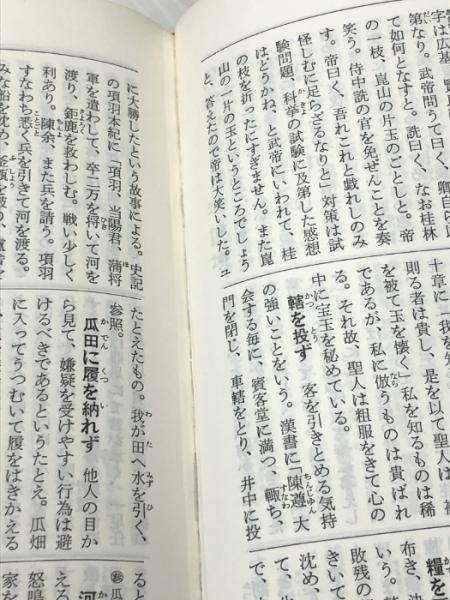 字は広基、
第なり。武帝問うて曰く、卿自ら以
て如何となすと。詵曰く、なお桂林
の一枝、崑山の片玉のごとしと。帝
笑う。侍中詵の官を免ぜんことを奏
す。帝曰く、吾れこれと戯れしのみ
怪しむに足らざるなりと」対策は試
験問題、科挙の試験に及第した感想
はどうかね、と武帝にいわれて、桂
の枝を折ったにすぎません。また崑
山の一片の玉というところでしょう
と、答えたので帝は大笑いした。ユ
十章に「我を知
則る者は貴し、是を以て聖人は
を被て玉を懐く」私を知るものは稀
であるが、私に倣うものは貴ばれ
る。それ故、聖人は粗服をきて心の
中に宝玉を秘めている。
轄を投ず 客を引きとめる気持
の強いことをいう。漢書に「陳遵大
会する毎に、賓客堂に満つ、輒ち、
門を閉じ、車轄をとり、井中に投
糧を
布き、決
いう。
敗残の
きいて
沈め、
て、生
で、
に大勝したという故事による。史記
の項羽本紀に「項羽、当陽君、蒲将
軍を遣わして、卒二万を将いて河を
渡り、鉅鹿を救わしむ。戦い少しく
利あり。陳余、また兵を請う。項羽
すなわち悉く兵を引きて河を渡る。
みな船を沈め、釜甑を破り、廬舎を
たとえたもの。我が田へ水を引く、
参照。
瓜田に履を納れず 他人の目か
ら見て、嫌疑を受けやすい行為は避
けるべきであるというたとえ。瓜畑
に入ってうつむいて履をはきかえる
ると
参瓜
河
える
怒鳴
家を